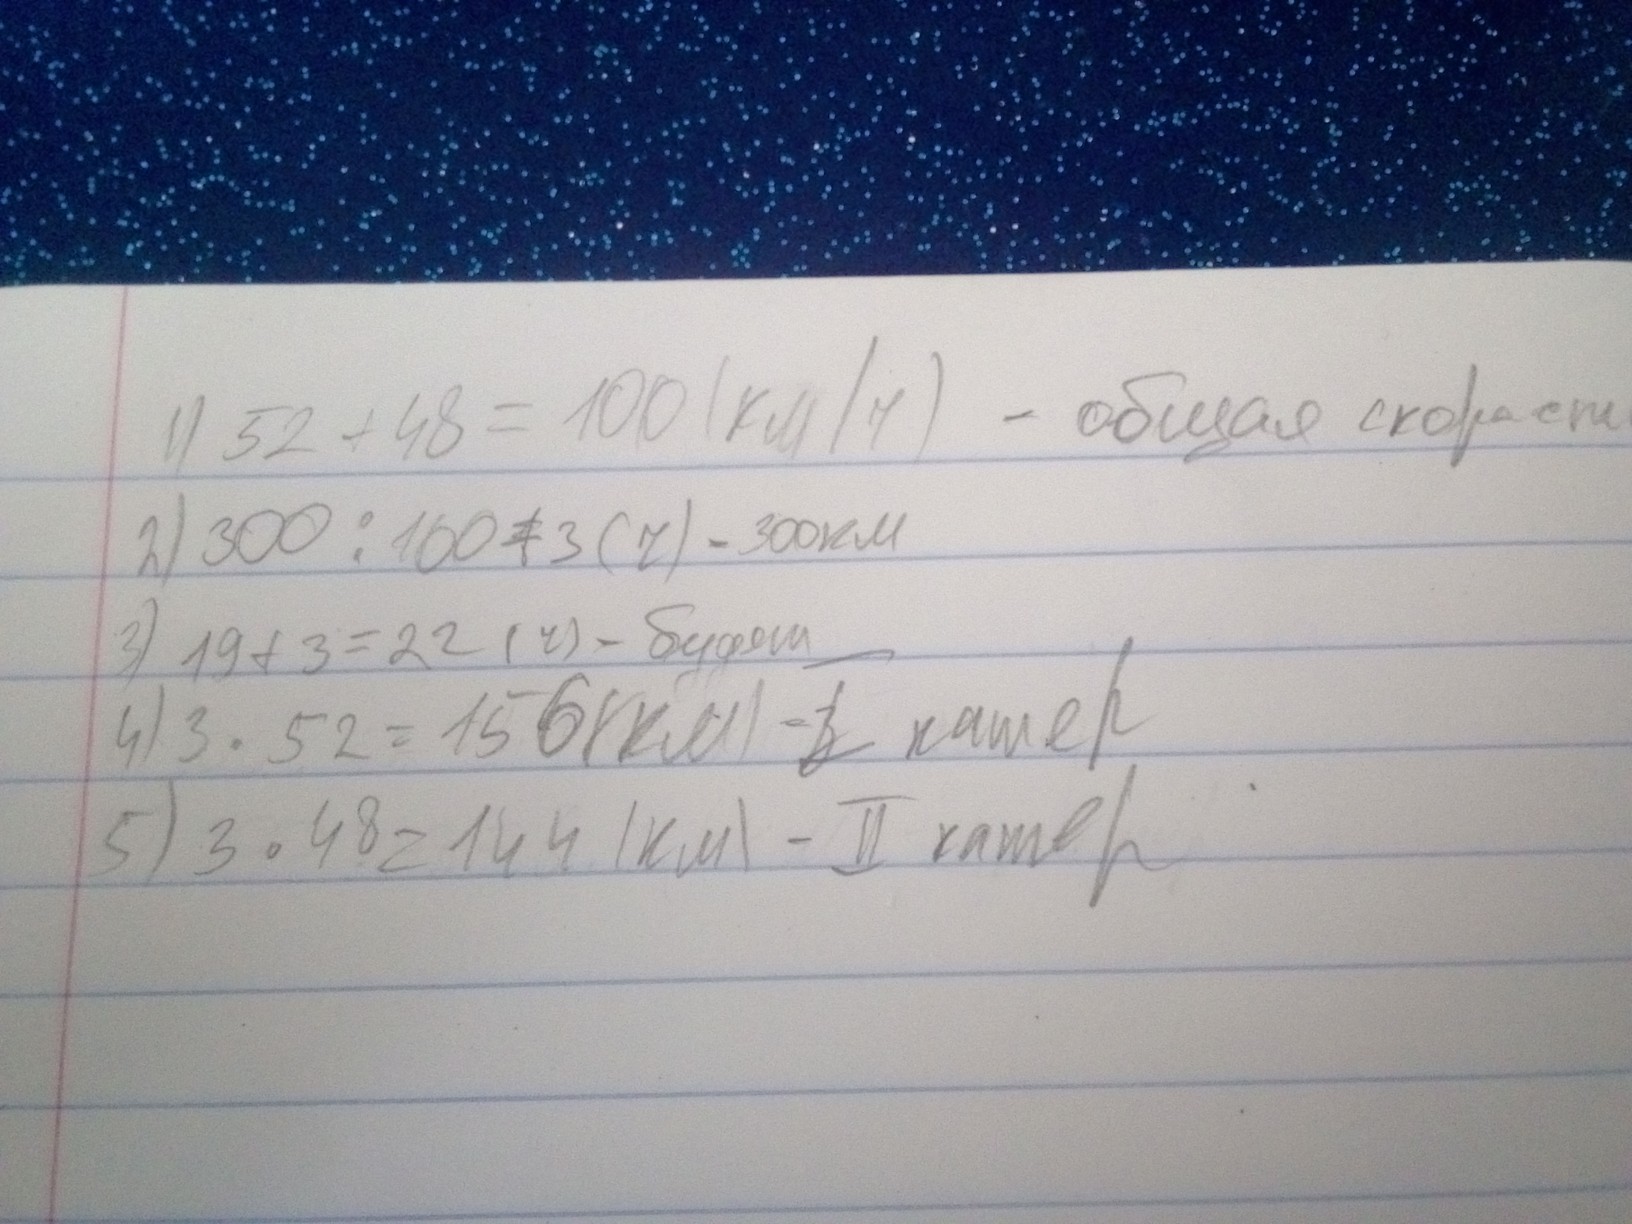 1) 52 + 48 = 100 (км/ч) - общая скорость
2) 300 : 100 = 3 (ч) - 300 км
3) 19 + 3 = 22 (ч) - будет
4) 3 · 52 = 156 (км) - I катер
5) 3 · 48 = 144 (км) - II катер